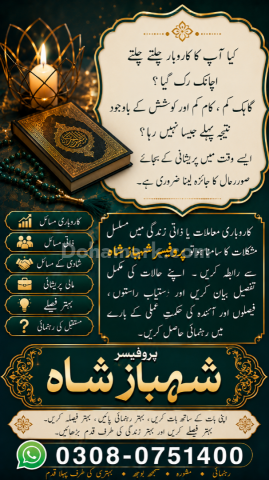 کیا آپ کا کاروبار چلتے چلتے
اچانک رک گیا ؟
گاہک کم ، کام کم اور کوشش کے باوجود
نتیجہ پہلے جیسا نہیں رہا ؟
ایسے وقت میں پریشانی کے بجائے
صورتحال کا جائزہ لینا ضروری ہے۔
کاروباری مسائل
ذاتی مسائل
شادی کے مسائل
مالی پریشانی
بہتر فیصلے
مستقبل کی رہنمائی ؟
کاروباری معاملات یا ذاتی زندگی میں مسلسل
مشکلات کا سامنا ہے پروفیسر شہباز شاہ
سے رابطہ کریں ۔ اپنے حالات کی مکمل
تفصیل بیان کریں اور دستیاب راستوں ،
فیصلوں اور آئندہ کی حکمتِ عملی کے بارے
میں رہنمائی حاصل کریں۔
پروفیسر
شہباز شاہ
اپنی بات کے ساتھ بات کریں ، بہتر رہنمائی پائیں ، بہتر فیصلہ کریں۔
بہتر فیصلے کریں اور بہتر زندگی کی طرف قدم بڑھائیں۔
0308-0751400
رہنمائی • مشورہ • سمجھ بوجھ • بہتری کی طرف پہلا قدم